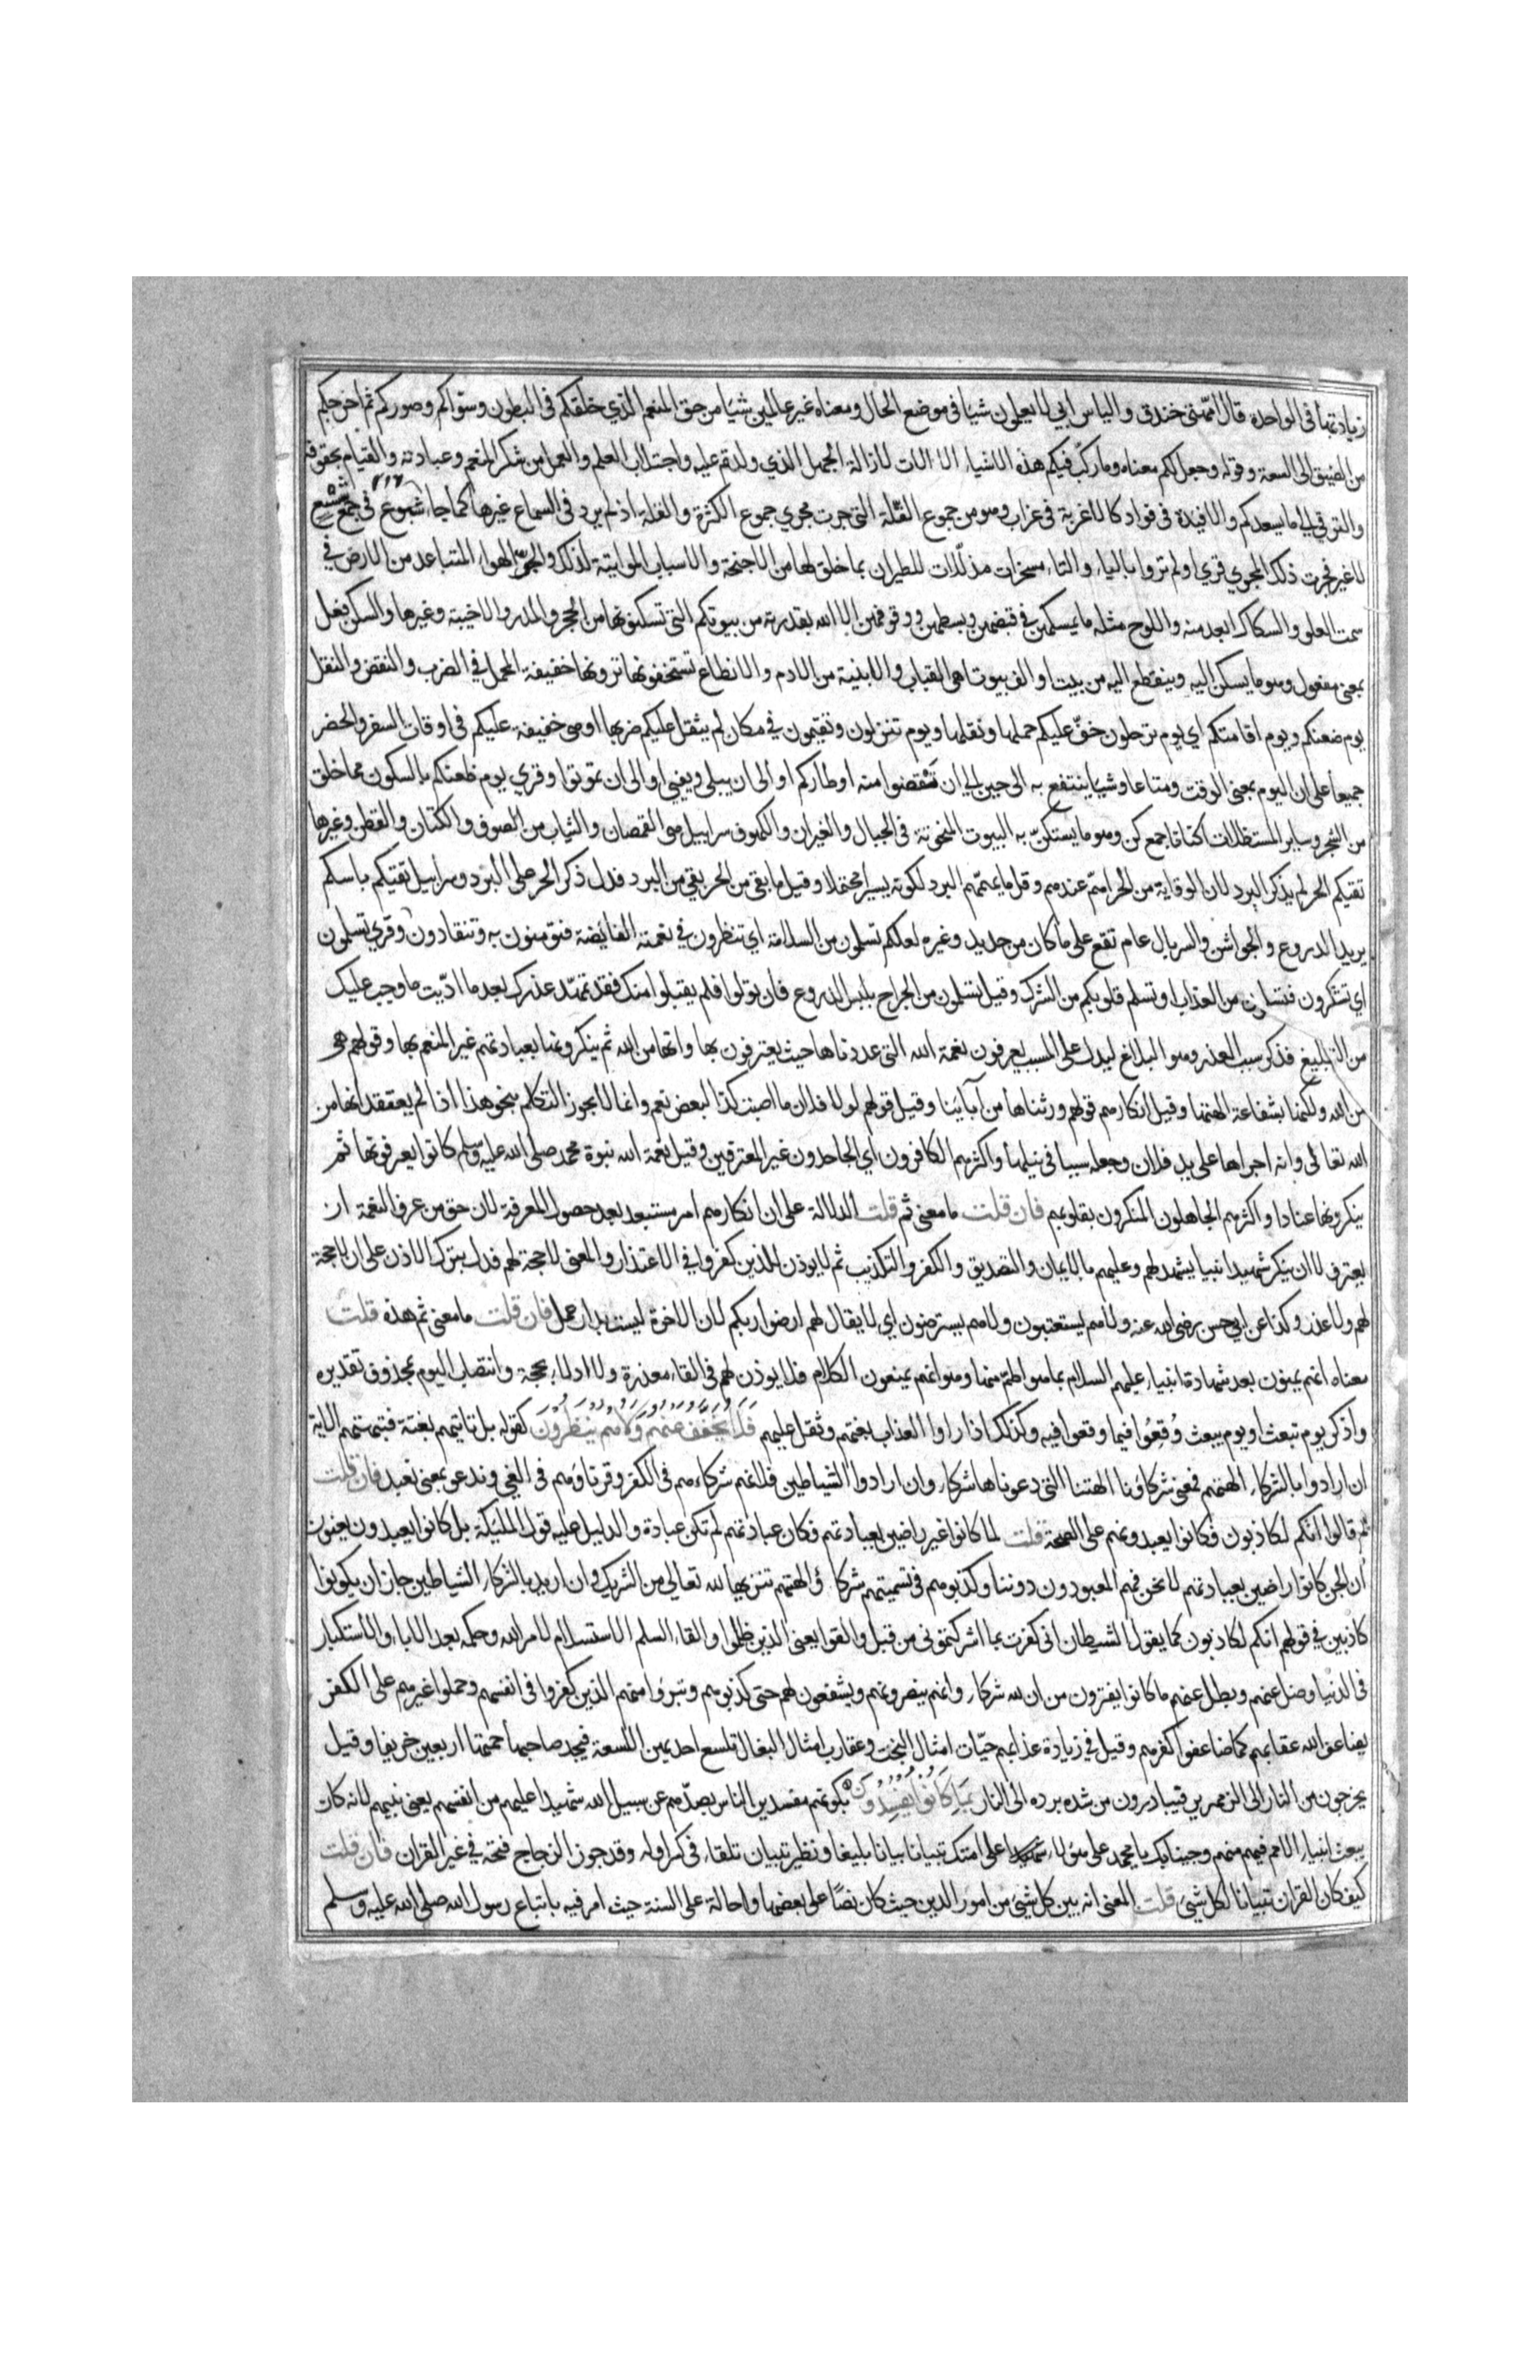 زيادتها في الواحدة قال امهتي خندق والياس ابي لا يعلمون شيا في موضع الحال ومعناه غير عالمين شيا من حق المنعم الذي خلقكم في البطون وسواكم وصوركم ثم اخرجكم
من الضيق الى السعة وقوله وجعل لكم معناه وما ركب فيكم هذه الاشياء الا الات لازالة الجهل الذي ولدتم عليه واجتلاب العلم والعمل من شكر المنعم وعبادته والقيام بحقوقه
والترقي الى ما يسعدكم والافيدة في فواد كالاغربة في غراب وهو من جموع القلة التي جرت مجري جموع الكثرة والقلة اذ لم يرد في السماع غيرها كما جا شسوع في جمع شسع
لا غير فجرت ذلك المجري قري اولم تروا بالياء والتاء مسخرات مذللات للطيران بما خلق لها من الاجنحة والاسباب المواتية لذلك والجو الهواء المتباعد من الارض في
سمت العلو والسكاك ابعد منه واللوح مثله ما يمسكهن في قبضهن وبسطهن ووقوفهن الا الله بقدرته من بيوتكم التي تسكنونها من الحجر والمدر والاخبية وغيرها والسكن فعل
بمعنى مفعول وهو ما يسكن اليه وينقطع اليه من بيت او الف بيوتا هي القباب والابنية من الادم والانطاع تستخفونها ترونها خفيفة المحمل في الضرب والنقض والنقل
يوم ضعنكم ويوم اقامتكم اي يوم ترحلون خف عليكم حملها ونقلها ويوم تنزلون وتقيمون في مكان لم يثقل عليكم ضربها او هي خفيفة عليكم في اوقات السفر والحضر
جميعا على ان اليوم بمعنى الوقت ومتاعا وشيا ينتفع به الى حين الى ان تقضوا منه اوطاركم او الى ان يبلى ويفنى او الى ان تموتوا وقري يوم ظعنكم بالسكون مما خلق
من الشجر وساير المستظلات اكنانا جمع كن وهو ما يستكن به البيوت المنحوتة في الجبال والغيران والكهوف سرابيل هي القمصان والثياب من الصوف والكتان والقطن وغيرها
تقيكم الحر لم يذكر البرد لان الوقاية من الحر اهم عندهم وقل ما يهمهم البرد لكونه يسيرا محتملا وقيل ما يقي من الحر يقي من البرد فدل ذكر الحر على البرد وسرابيل تقيكم باسكم
يريد الدروع والجواشن والسربال عام تقع على ما كان من حديد وغيره لعلكم تسلمون من السلامة اي تنظرون في نعمته الفائضة فتومنون به وتنقادون وقري تسلمون
اي تشكرون فتسلمون من العذاب او تسلم قلوبكم من الشرك وقيل تسلمون من الجراح بلبس الدروع فان تولوا فلم يقبلوا منك فقد تمهد عذرك بعد ما اديت ما وجب عليك
من التبليغ فذكر سبب العذر وهو البلاغ ليدل على المسبب يعرفون نعمة الله التي عددناها حيث يعترفون بها وانها من الله ثم ينكرونها بعبادتهم غير المنعم بها وقولهم هي
من الله ولكنها بشفاعة الهتنا وقيل انكارهم قولهم ورثناها من آبائنا وقيل قولهم لولا فلان ما اصبت كذا لبعض نعم وانما لا يجوز التكلم بنحو هذا اذا لم يعتقد انها من
الله تعالى وانه اجراها على يد فلان وجعله سببا في نيلها واكثرهم الكافرون اي الجاحدون غير المعترفين وقيل نعمة الله نبوة محمد صلى الله عليه وسلم كانوا يعرفونها ثم
ينكرونها عنادا واكثرهم الجاهلون المنكرون بقلوبهم فان قلت ما معنى ثم قلت الدلالة على ان انكارهم امر مستبعد بعد حصول المعرفة لان حق من عرف النعمة ان
يعترف لا ان ينكر شهيدا نبيا يشهد لهم وعليهم بالايمان والتصديق والكفر والتكذيب ثم لا يوذن للذين كفروا في الاعتذار والمعنى لا حجة لهم فدل بترك الاذن على ان لا حجة
لهم ولا عذر وكذا عن الحسن رضى الله عنه ولا هم يستعتبون ولا هم يسترضون اي لا يقال لهم ارضوا ربكم لان الاخرة ليست بدار عمل فان قلت ما معنى ثم هذه قلت
معناه انهم يمنون بعد شهادة انبياء عليهم السلام بما هو اطم منها وهو انهم يمنعون الكلام فلا يوذن لهم في القاء معذرة ولا ادلاء بحجة وانتصاب اليوم بمحذوف تقديره
واذكر يوم نبعث او يوم يبعث وقعوا فيما وقعوا فيه وكذلك اذا راوا العذاب بغتهم وثقل عليهم فَلَا يُخَفَّفُ عَنْهُمْ وَلَا هُمْ يُنْظَرُونَ كقوله بل تاتيهم بغتة فتبهتهم الاية
ان ارادوا بالشركاء الهتهم فمعنى شركاؤنا الهتنا التي دعوناها شركاء وان ارادوا الشياطين فلانهم شركاءهم في الكفر وقرناؤهم في الغي وندعو بمعنى نعبد فان قلت
ثم قالوا انكم لكاذبون وكانوا يعبدونهم على الصحة قلت لما كانوا غير راضين بعبادتهم فكان عبادتهم لم تكن عبادة والدليل عليه قول المليكة بل كانوا يعبدون يعنون
ان الجن كانوا راضين بعبادتهم لا نحن فهم المعبودون دوننا وكذبوهم في تسميتهم شركاء والهتهم تنزيها لله تعالى من الشريك وان اريد بالشركاء الشياطين جاز ان يكونوا
كاذبين في قولهم انكم لكاذبون كما يقول الشيطان اني كفرت بما اشركتموني من قبل والقوا يعني الذين ظلموا والقاء السلم الاستسلام لامر الله وحكمه بعد الاباء والاستكبار
في الدنيا وضل عنهم وبطل عنهم ما كانوا يفترون من ان لله شركاء وانهم ينصرونهم ويشفعون لهم حتى كذبوهم وتبرؤا منهم الذين كفروا في انفسهم وحملوا غيرهم على الكفر
يضاعف الله عقابهم كما ضاعفوا كفرهم وقيل في زيادة عذابهم حيات امثال البخت وعقارب امثال البغال تلسع احديهن اللسعة فيجد صاحبها حمتها اربعين خريفا وقيل
يخرجون من النار الى الزمهرير فيبادرون من شدة برده الى النار بِمَا كَانُوا يُفْسِدُونَ بكونهم مفسدين الناس بصدهم عن سبيل الله شهيدا عليهم من انفسهم يعني نبيهم لانه كان
يبعث انبياء الامم فيهم منهم وجينا بك يا محمد على هؤلاء شهيدا على امتك تبيانا بيانا بليغا ونظير تبيان تلقاء في كسر اوله وقد جوز الزجاج فتحه في غير القران فان قلت
كيف كان القران تبيانا لكل شيئ قلت المعنى انه بين كل شيئ من امور الدين حيث كان نصا على بعضها واحالة على السنة حيث امر فيه باتباع رسول الله صلى الله عليه وسلم